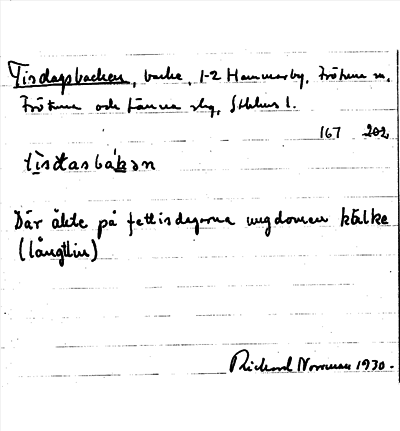 Tisdagsbacken, backe, 1-2 Hammarby, Frötuna sn,
Frötuna och Länna slg, Sthlms l.
167 202
tìsdasbákən
Där åkte på fettisdagarna ungdomen kälke
(långtlin)
Rickard Norrman 1930.